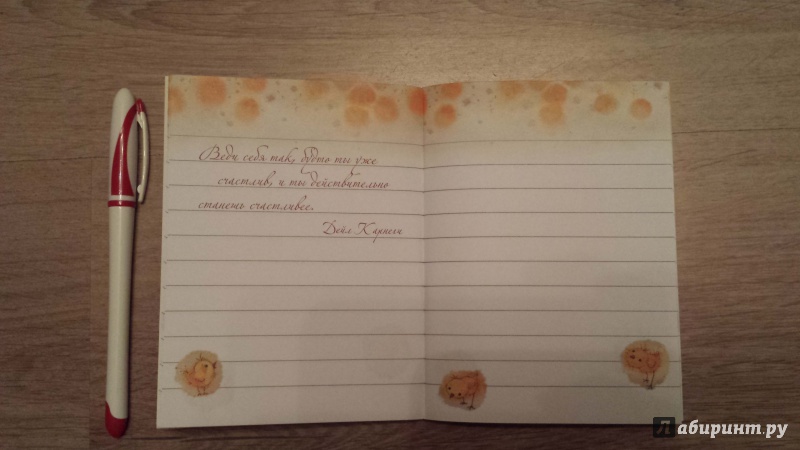 Веди себя так, будто ты уже
счастлив, и ты действительно
станешь счастливее.
Дейл Карнеги
Лабиринт.ру